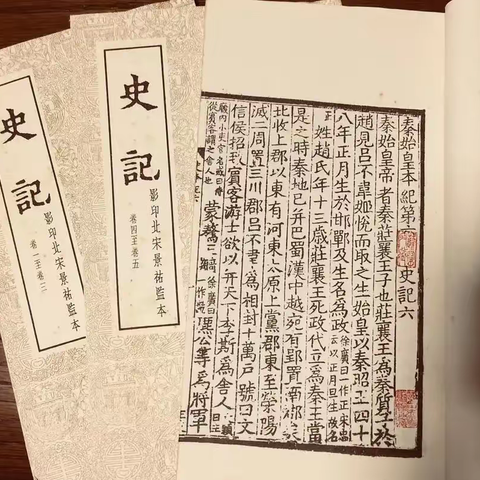 史記
影印北宋景祐監本
卷一至卷三
史記
影印北宋景祐監本
卷四至卷五
秦始皇本紀第六 史記六
秦始皇帝者秦莊襄王子也莊襄王為秦質子於
趙見呂不韋姬悅而取之生始皇以秦昭王四十
八年正月生於邯鄲及生名為政徐廣曰一作正宋忠云以正月旦生故名
姓趙氏年十三歲莊襄王死政代立為秦王當
是之時秦地已并巴蜀漢中越宛有郢置南郡
北收上郡以東有河東太原上黨郡東至滎陽
滅二周置三川郡呂不韋為相封十萬戶號曰文
信侯招致賓客游士欲以并天下李斯為舍人
內小吏官名或曰侍從賓客謂之舍人也蒙驁王齮徐廣曰一作 公等為將軍